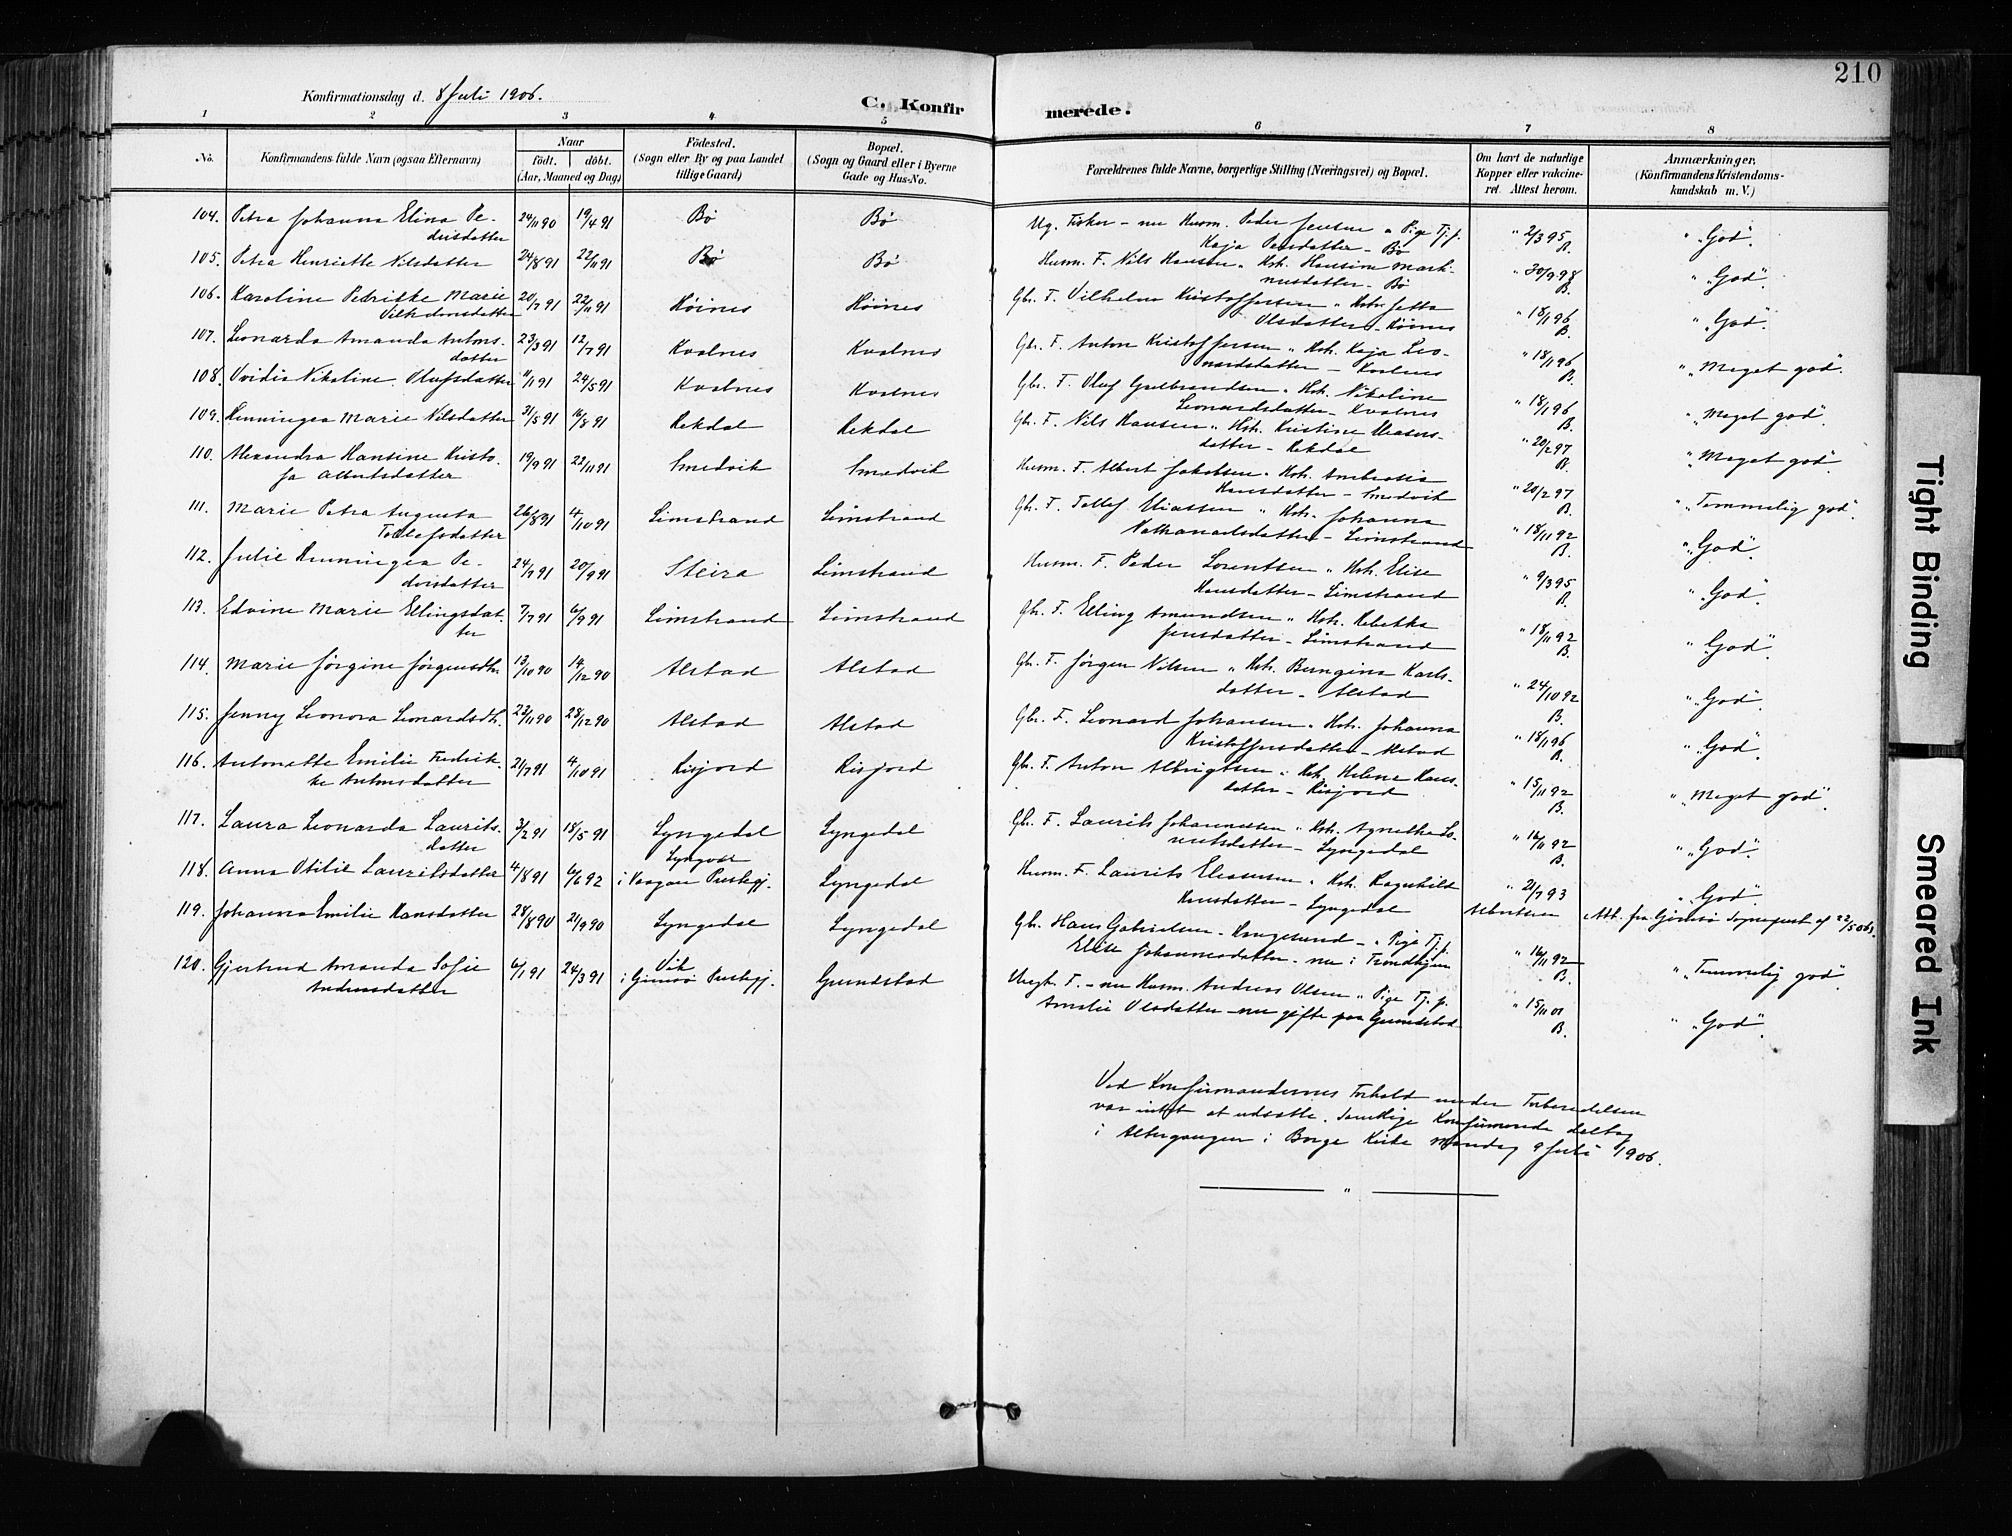 210
Konfirmationsdag d. 8 Juli 1906.
C. Konfirmerede.
1 2 3 4 5 6 7 8
No.
Konfirmandens fulde Navn (ogsaa Efternavn)
Naar
födt. döbt.
(Aar, Maaned og Dag)
Födested.
(Sogn eller By og paa Landet
tillige Gaard)
Bopæl.
(Sogn og Gaard eller i Byerne
Gade og Hus-No.
Forældrenes fulde Navne, borgerlige Stilling (Næringsvei) og Bopæl.
Om havt de naturlige
Kopper eller vakcine-
ret. Attest herom.
Anmærkninger,
(Konfirmandens Kristendoms-
kundskab m. V.)
104. Petra Johanna Elina Pe- 24/11 90 19/4 91 Bö Bö Ug. Fisker - nu Husm. Peder Jensen " Pige Tj.p. " 2/3 95 " "God".
dersdatter Kaja Pedersdatter - Bö B.
105. Petra Henriette Nilsdatter 24/8 91 22/11 91 Bö Bö Husm. F. Nils Hansen " Hst. Hansine Mark- " 30/9 98 " "God".
nusdatter - Bö B.
106. Karoline Petrikke Marie 20/7 91 22/11 91 Höines Höines Gbr. F. Vilhelm Kristoffersen " Hst. Jetta " 18/1 96 " "God".
Vilhelmsdatter Olsdatter - Höines B.
107. Leonarda Amanda Antons- 23/3 91 12/7 91 Kvalnes Kvalnes Gbr. F. Anton Kristoffersen " Hst. Kaja Leo- " 18/1 96 " "Meget god".
datter nardsdatter - Kvalnes B.
108. Ovidia Nikoline Olufsdatter 11/1 91 24/5 91 Kvalnes Kvalnes Gbr. F. Oluf Gulbrandsen " Hst. Nikoline " 18/1 96 " "Meget god".
Leonardsdatter - Kvalnes B.
109. Henningea Marie Nilsdatter 31/5 91 16/8 91 Rekdal Rekdal Gbr. F. Nils Hansen " Hst. Kristine " 20/2 97 " "Meget god".
datter - Rekdal B.
110. Alexandra Hansine Kristo- 19/9 91 22/11 91 Smedvik Smedvik Husm. F. Albert Jakobsen " Hst. Ambrosia " 20/2 97 " "Temmelig god".
fa Albertsdatter Hansdatter - Smedvik B.
111. Marie Petra Augusta 26/8 91 4/10 91 Limstrand Limstrand Gbr. F. Tollef " Hst. Johanna " 18/11 92 " "God".
Tollefsdatter Nathanaelsdatter - Limstrand B.
112. Julie Henningea Pe- 24/7 91 20/9 91 Steira Limstrand Husm. F. Peder Lorentsen " Hst. Elise " 9/3 95 " "God".
dersdatter Hansdatter - Limstrand B.
113. Edvine Marie Ellingsdat- 7/7 91 6/9 91 Limstrand Limstrand Gbr. F. Elling Amundsen " Hst. Rebekka " 18/11 92 " "God".
ter Jensdatter - Limstrand B.
114. Marie Jörgine Jörgensdtr. 13/10 90 14/12 90 Alstad Alstad Gbr. F. Jörgen Nilsen " Hst. Berngina Karls- " 24/10 92 " "God".
datter - Alstad B.
115. Jenny Leonora Leonardsdtr. 22/11 90 28/12 90 Alstad Alstad Gbr. F. Leonard Johansen " Hst. Johanna " 18/1 96 " "God".
Kristoffersdatter - Alstad B.
116. Antonette Emilie Fredrik- 21/7 91 4/10 91 Risjord Risjord Gbr. F. Anton Albrigtsen " Hst. Helene Hans- " 15/11 92 " "Meget god".
ke Antonsdatter datter - Risjord B.
117. Laura Leonarda Laurits- 3/2 91 18/5 91 Lyngedal Lyngedal Gbr. F. Laurits Johannessen " Hst. Agnetha Lo- " 16/11 92 " "God".
datter rentsdatter - Lyngedal B.
118. Anna Otilie Lauritsdatter 4/8 91 6/6 92 i Vaagan Prestegj. Lyngedal Husm. F. Laurits Eliasensen " Hst. Ragnhild " 21/7 93 " "God".
Hansdatter - Lyngedal Albertsen
119. Johanna Emilie Hansdatter 28/8 90 21/9 90 Lyngedal Lyngedal Gbr. Hans Gabrielsen - Haugesund - " Pige Tj.p. " 16/11 92 Att. fra Gimsö Sognepræst af 22/5 06.
Elise Johannesdatter - nu i Trondhjem B. " "Temmelig god".
120. Gjertrud Amanda Sofie 6/1 91 24/3 91 Vik Grundstad Ungk. F. - nu Husm. Andreas Olsen " Pige Tj.p. " 15/11 01 " "God".
Andreasdatter i Gimsö Prestegj. Amalie Olsdatter - nu gifte paa Grundstad B.
Ved Konfirmandernes Forhold under Forberedelsen
var intet at udsætte. Samtlige Konfirmerede deltog
i Altergangen i Borge Kirke Mandag 9 Juli 1906.
Tight Binding
Smeared Ink